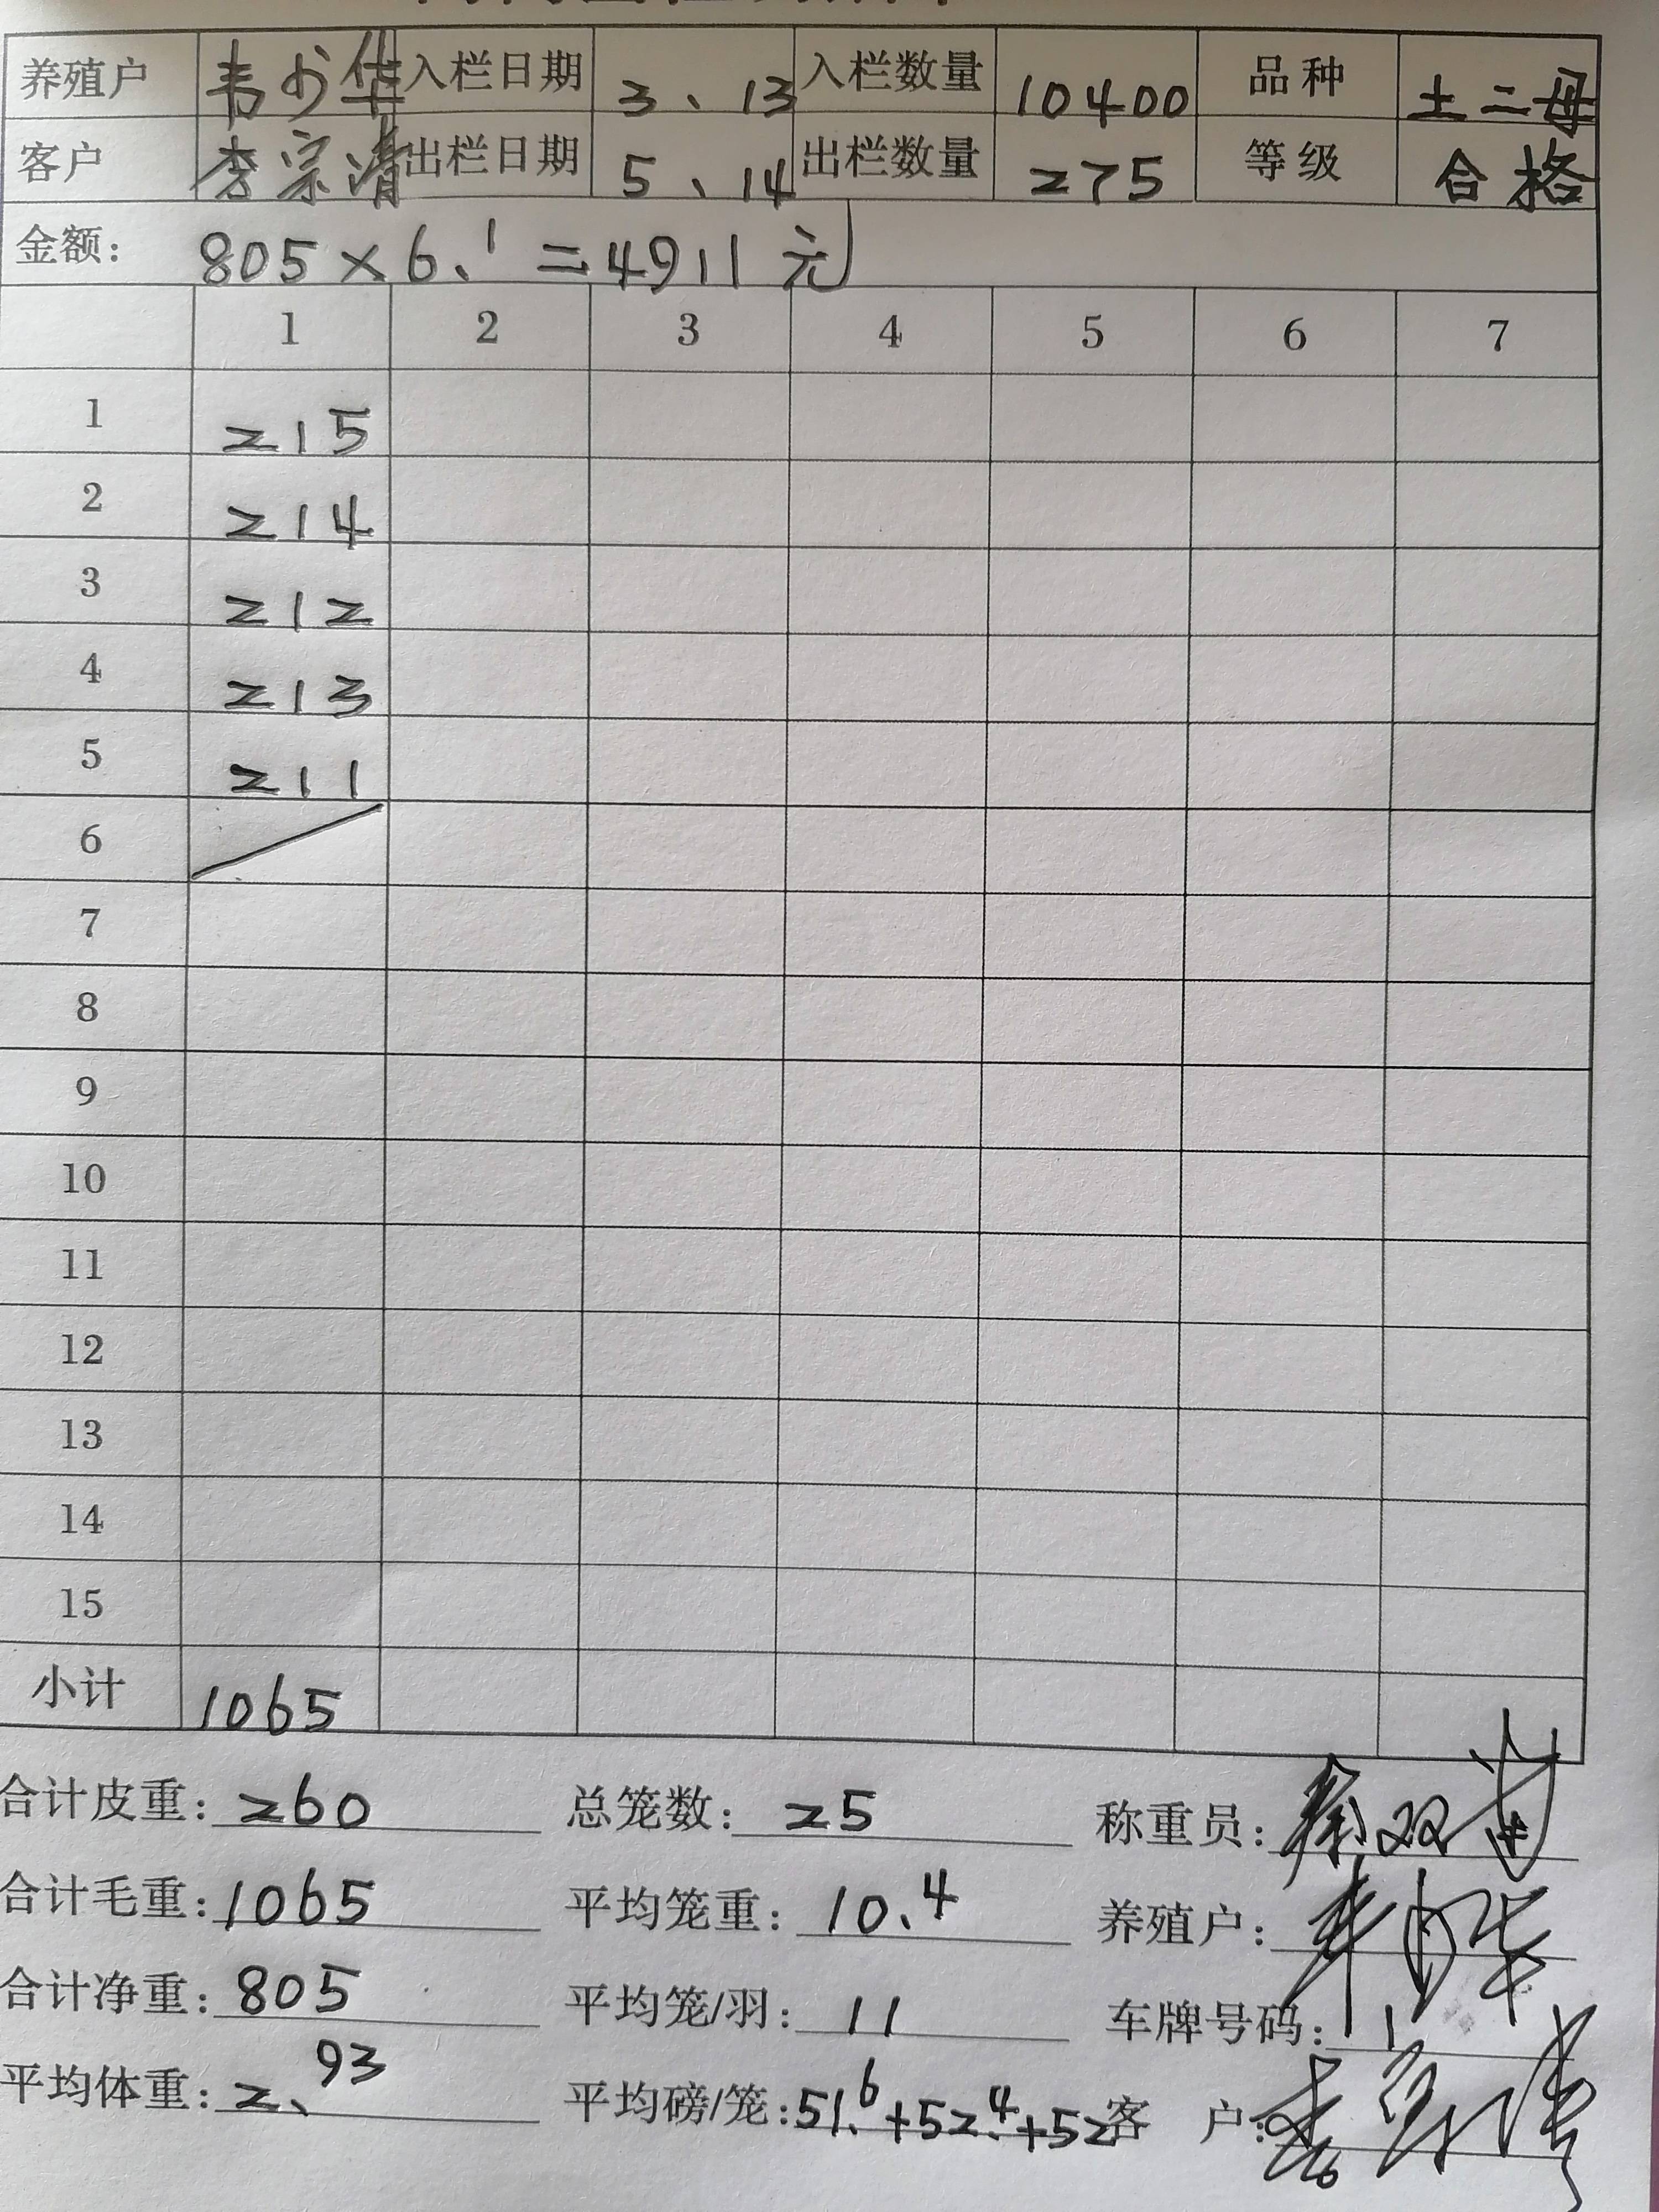 养殖户 韦少华 入栏日期 3、13 入栏数量 10400 品种 土二母
客户 李宗清 出栏日期 5、14 出栏数量 275 等级 合格
金额: 805×6.1=4911元
1 2 3 4 5 6 7
1 215
2 214
3 212
4 213
5 211
6
7
8
9
10
11
12
13
14
15
小计 1065
合计皮重: 260 总笼数: 25 称重员:
合计毛重: 1065 平均笼重: 10.4 养殖户:
合计净重: 805 平均笼/羽: 11 车牌号码:
平均体重: 2.93 平均磅/笼: 51.6+52.4+52 客 户: